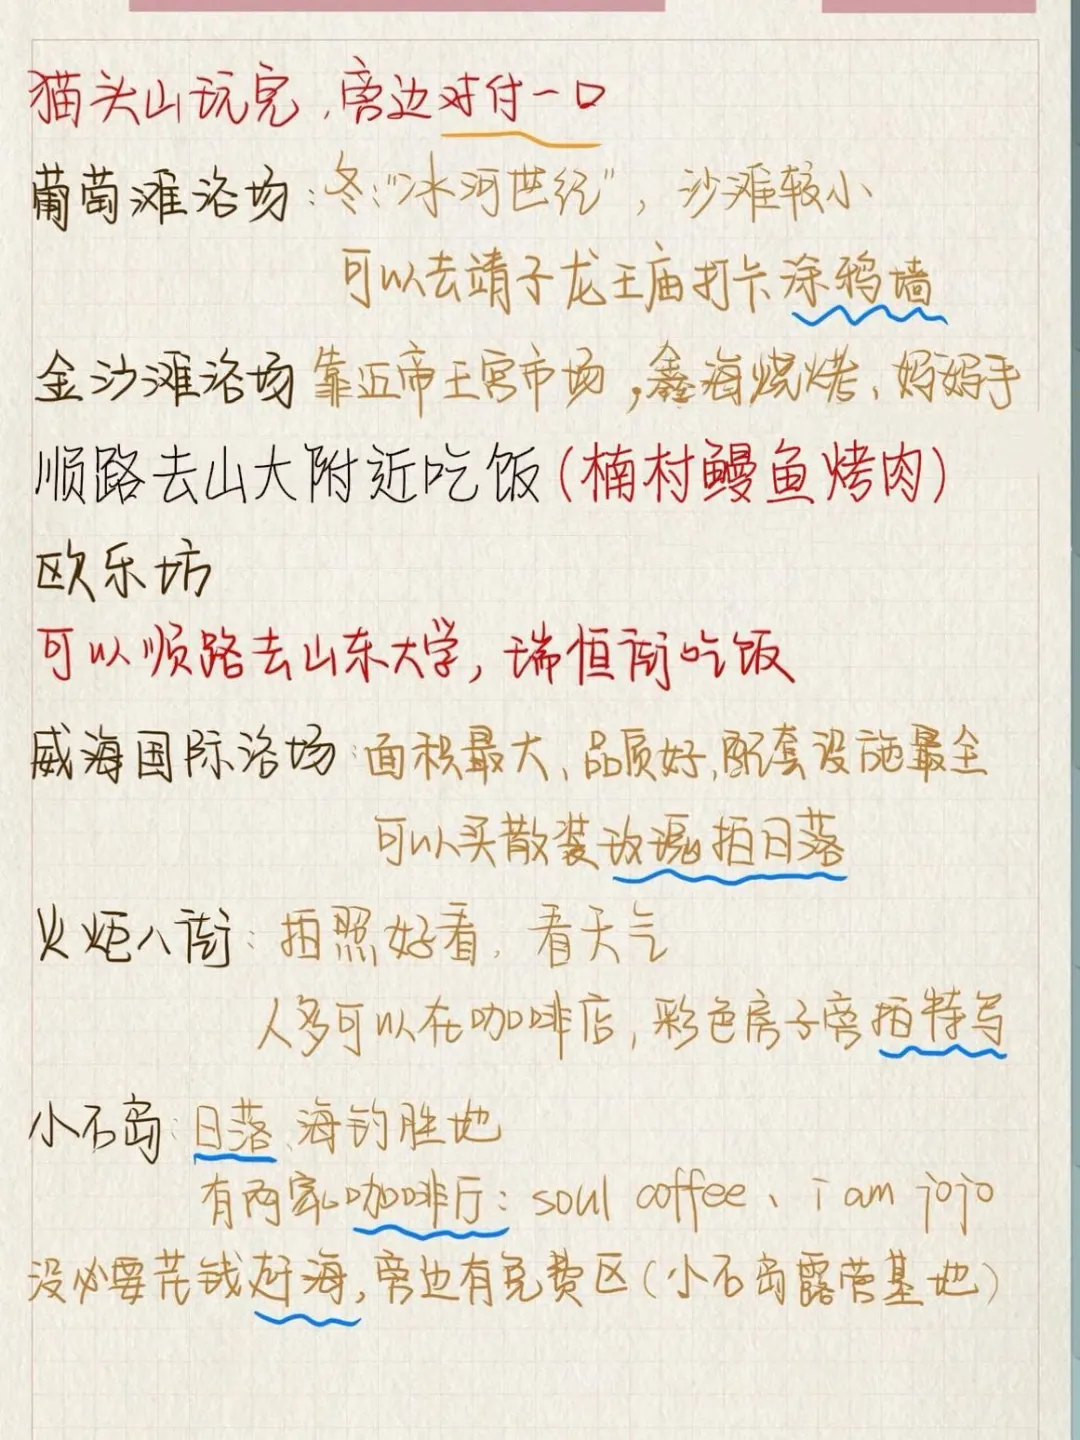 猫头山玩完,旁边对付一口
葡萄滩浴场:冬:“冰河世纪”,沙滩较小
可以去靖子龙王庙打卡涂鸦墙
金沙滩浴场 靠近帝王宫市场,鑫海烧烤、妈妈手
顺路去山大附近吃饭(楠村鳗鱼烤肉)
欧乐坊
可以顺路去山东大学,瑞恒街吃饭
威海国际浴场:面积最大、品质好,配套设施最全
可以买散装玫瑰拍日落
火炬八街:拍照好看,看天气
人多可以在咖啡店,彩色房子旁拍特写
小石岛:日落、海钓胜地
有两家咖啡厅:soul coffee、i am jojo
没必要花钱赶海,旁边有免费区(小石岛露营基地)